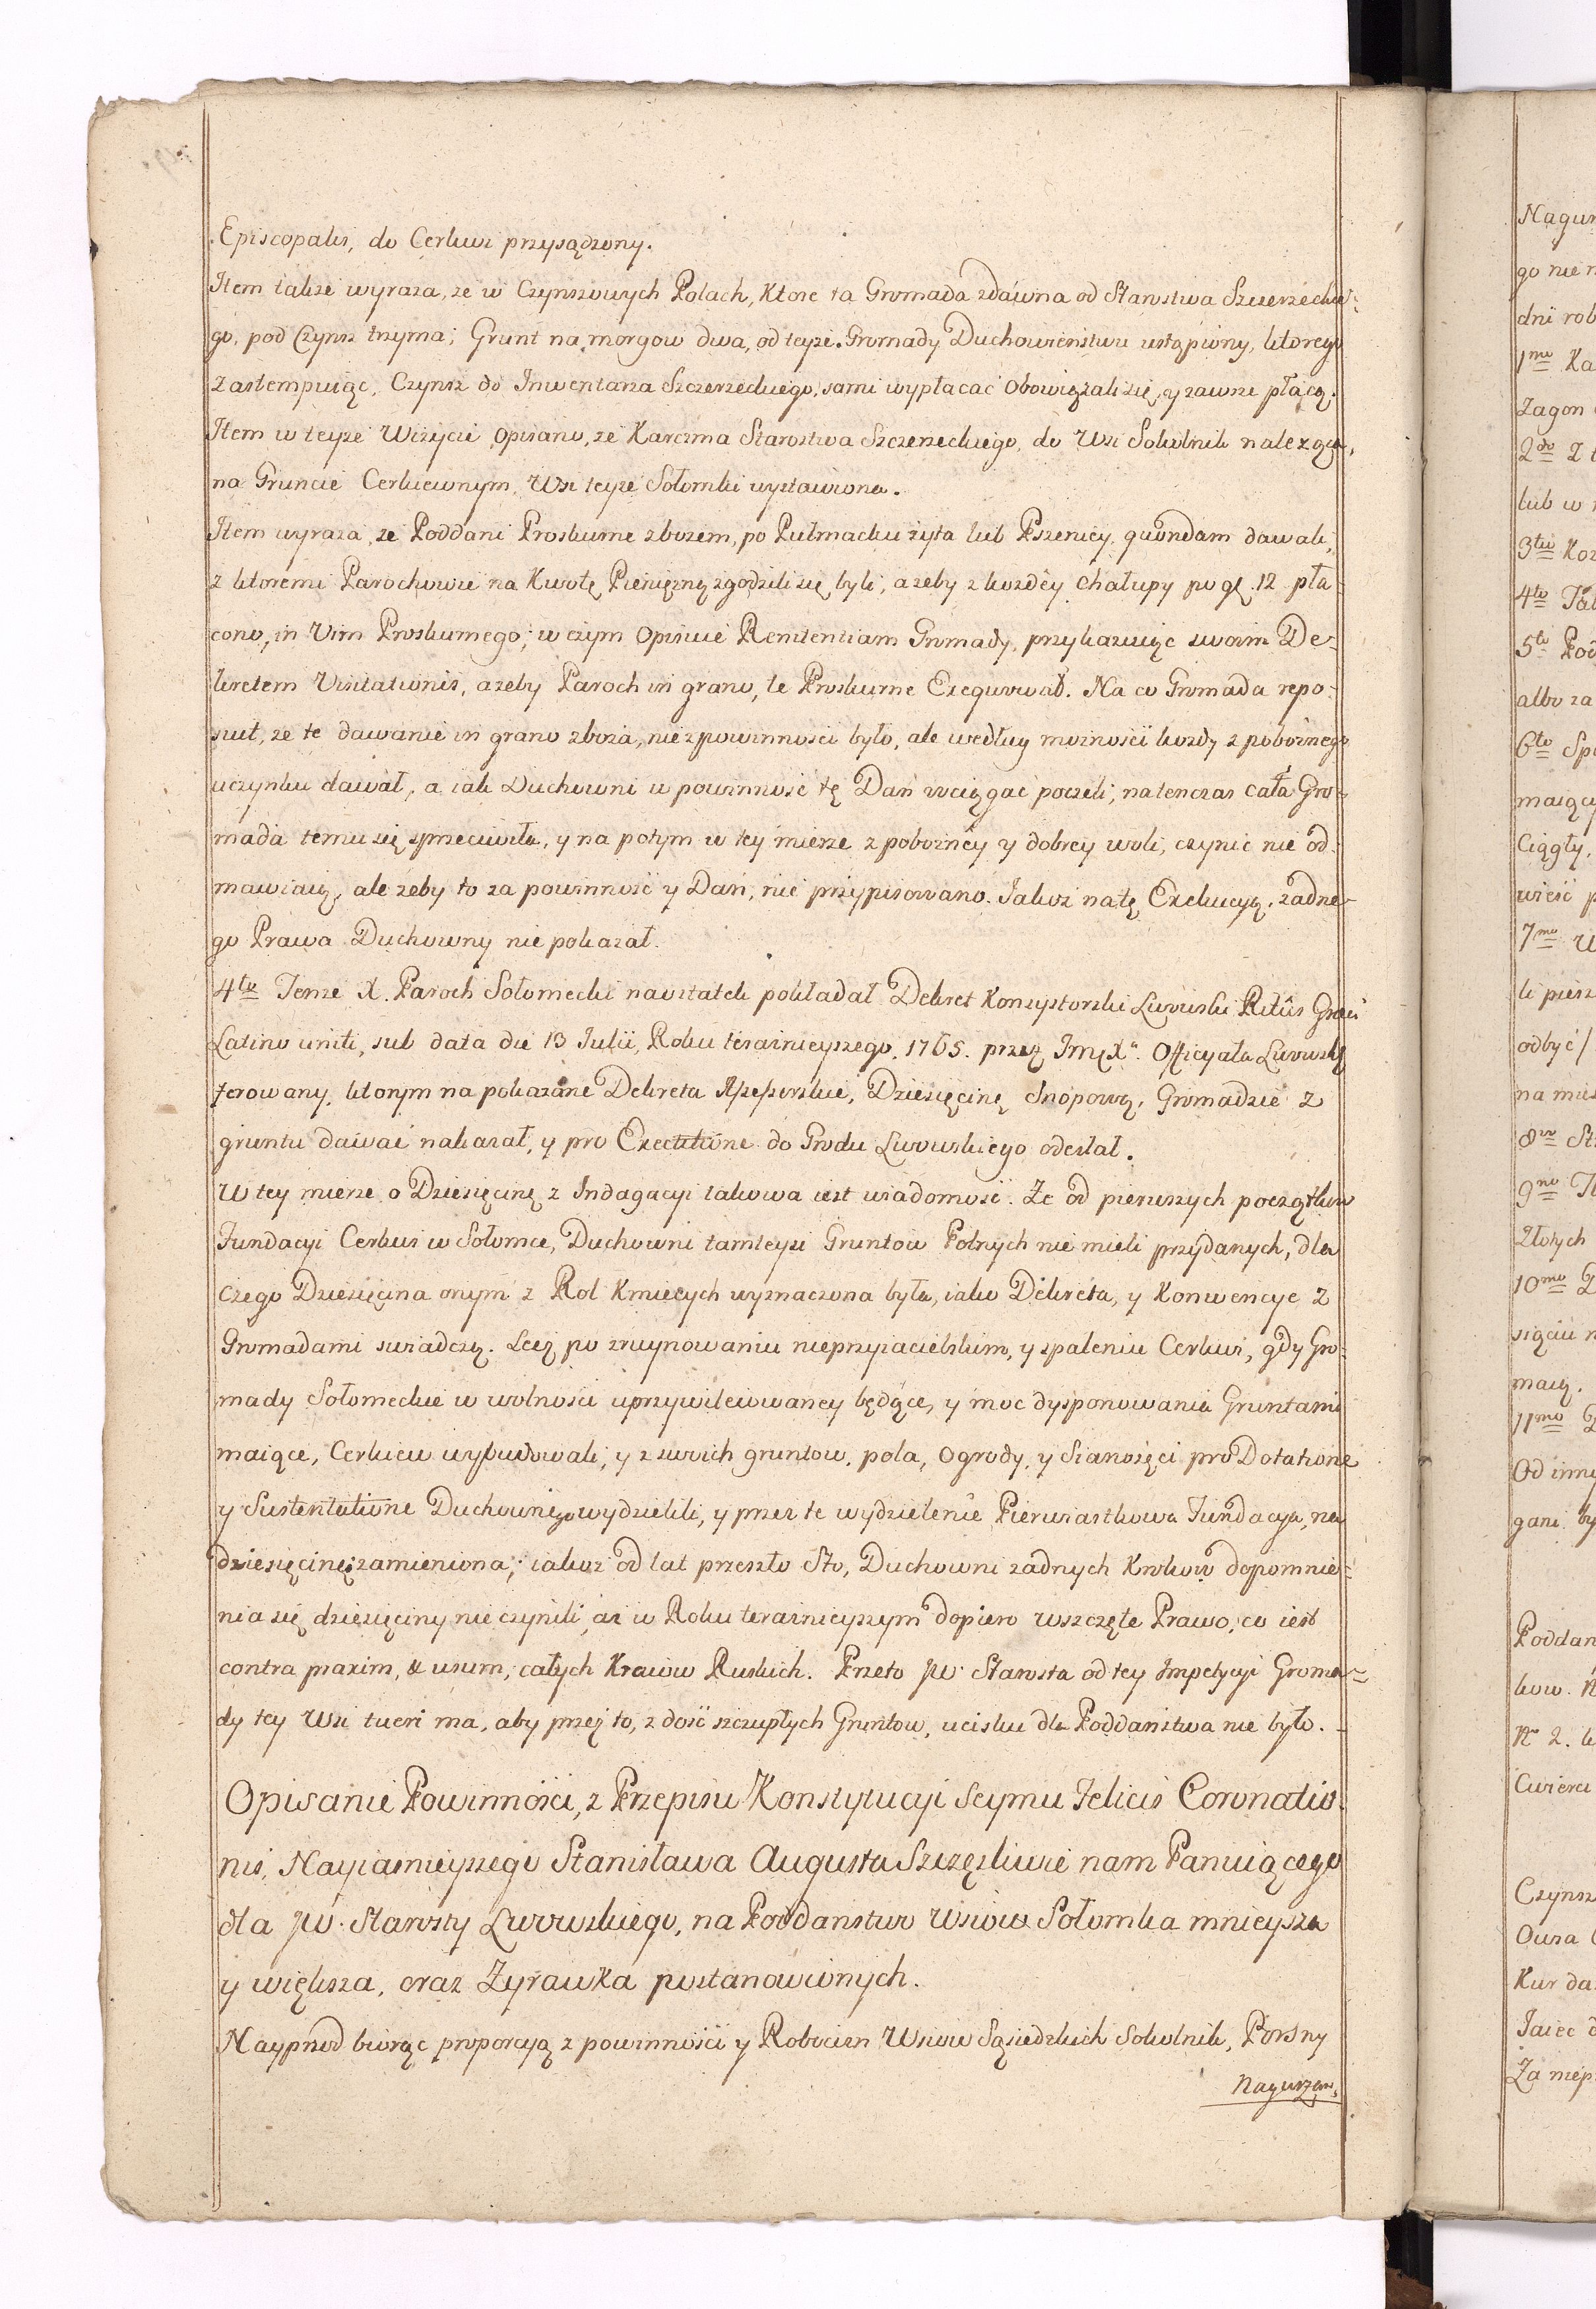 Episcopalis, do Cerkwi przysądzony.
Item takze wyraza, ze w Czynszowych Polach, Ktore ta Gromada zdawna od Starostwa Szczerzeckie-
go, pod Czynsz trzyma; Grunt na morgow dwa, od teyze Gromady Duchowieństwu ustąpiony, ktorego
zastempuiąc, Czynsz do Inwentarza Szczerzeckiego, sami wypłacać Obowiązali się, y zawsze płacą.
Item w teyze Wizycie opisano, ze Karczma Starostwa Szczerzeckiego, do Wsi Sokolnik należąca,
na Gruncie Cerkiewnym, Wsi teyze Sołomki wystawiona.
Item wyraza, ze Poddani Proskurne zbozem, po Pułmacku żyta lub Pszenicy, quondam dawali,
z ktoremi Parochowie na Kwotę Pieniężną zgodzili się byli, azeby z kozdey Chałupy po gr. 12 pła-
cono, in Vim Proskurnego; w czym Opisuie Renitentiam Gromady, przykazuiąc swoim De-
kretem Visitationis, azeby Paroch in grano, te Proskurne Exequował. Na co Gromada repo-
suit, ze te dawanie in grano zboza, nie z powinności było, ale według możności kozdy z pobożnego
uczynku dawał, a iak Duchowni w powinność tę Dań wciągać poczeli, natenczas cała Gro-
mada temu się sprzeciwiła, y na potym w tey mierze z pobożney y dobrey woli, czynić nie od-
mawiaią, ale zeby to za powinność y Dań, nie przypisowano. Jakoż na tę Exekucyą, zadne-
go Prawa Duchowny nie pokazał.
4to Tenze X. Paroch Sołomecki naostatek pokładał Dekret Konsystorski Lwowski Ritûs Graeci
Latino uniti, sub data die 13 Julii, Roku teraznieyszego 1765. przez Jmę Xa. Officyała Lwowsk
ferowany, ktorym na pokazane Dekreta Assessorskie, Dziesięcinę Snopową, Gromadzie z
gruntu dawać nakazał, y pro Executione do Grodu Lwowskiego odesłał.
W tey mierze o Dziesięcinę z Indagacyi takowa iest wiadomość. Ze od pierwszych początkow
Fundacyi Cerkwi w Sołomce, Duchowni tamteysi Gruntow Polnych nie mieli przydanych, dla
czego Dziesięcina onym z Rol Kmiecych wyznaczona była, iako Dekreta, y Konwencye z
Gromadami swiadczą. Lecz po zruynowaniu nieprzyiacielskim, y spaleniu Cerkwi, gdy Gro-
mady Sołomeckie w wolności uprzywileiowaney będące, y moc dysponowania Gruntami
maiące, Cerkiew wybudowali, y z swoich gruntow, pola, Ogrody, y Sianożęci pro Dotatione
y Sustentatione Duchownego wydzielili, y przez te wydzielenie Pierwiastkowa Fundacya, na
dziesięcinę zamieniona; iakoż od lat przeszło Sto, Duchowni zadnych Krokow dopomnie-
nia się dziesięciny nie czynili, aż w Roku teraznieyszym dopiero wszczęte Prawo, co iest
contra praxim, & usum, całych Kraiow Ruskich. Przeto JW. Starosta od tey Impetycyi Groma-
dy tey Wsi tueri ma, aby przez to, z dość szczupłych Gruntow, ucisku dla Poddaństwa nie było.
Opisanie Powinności, z Przepisu Konstytucyi Seymu Felicis Coronatio-
nis, Nayiasnieyszego Stanisława Augusta Szczęsliwie nam Panuiącego
dla JW. Starosty Lwowskiego, na Poddanstwo Wsiow Sołomka mnieysza
y większa, oraz Zyrawka postanowionych.
Nayprzod biorąc proporcyą z powinności y Robocizn Wsiow Sąsiedzkich Sokolnik, Porsny
Nagorzan,